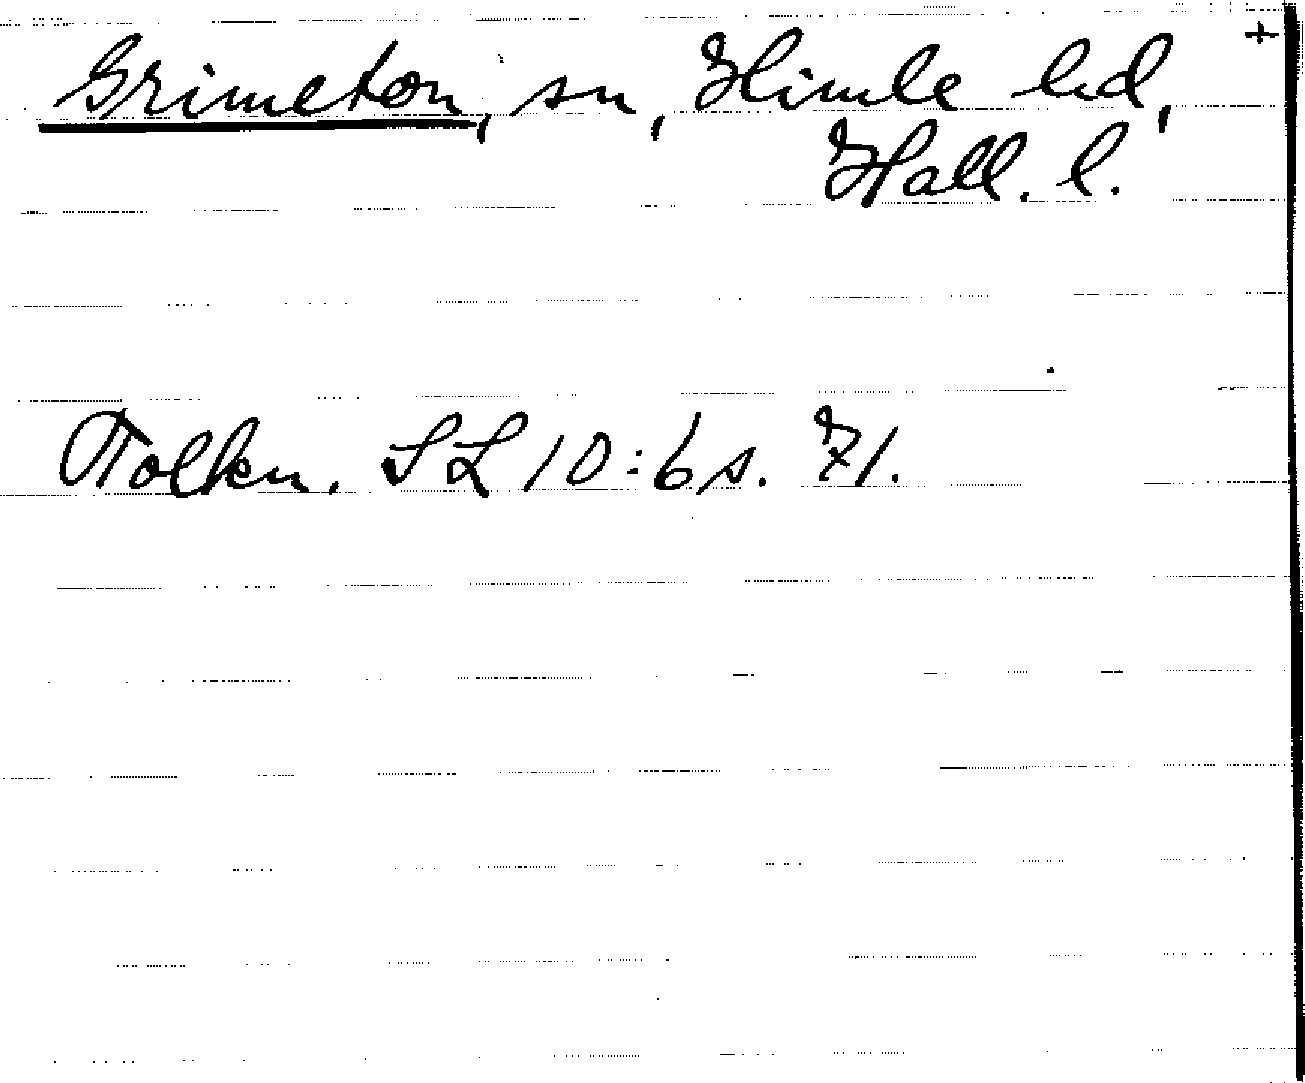 +
Grimeton, sn, Himle hd,
Hall. l.
Tolkn. SL 10:6 s. 71.